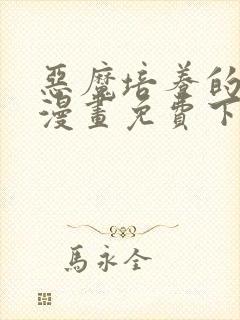 惡魔培養的
漫畫免費下
馬永全